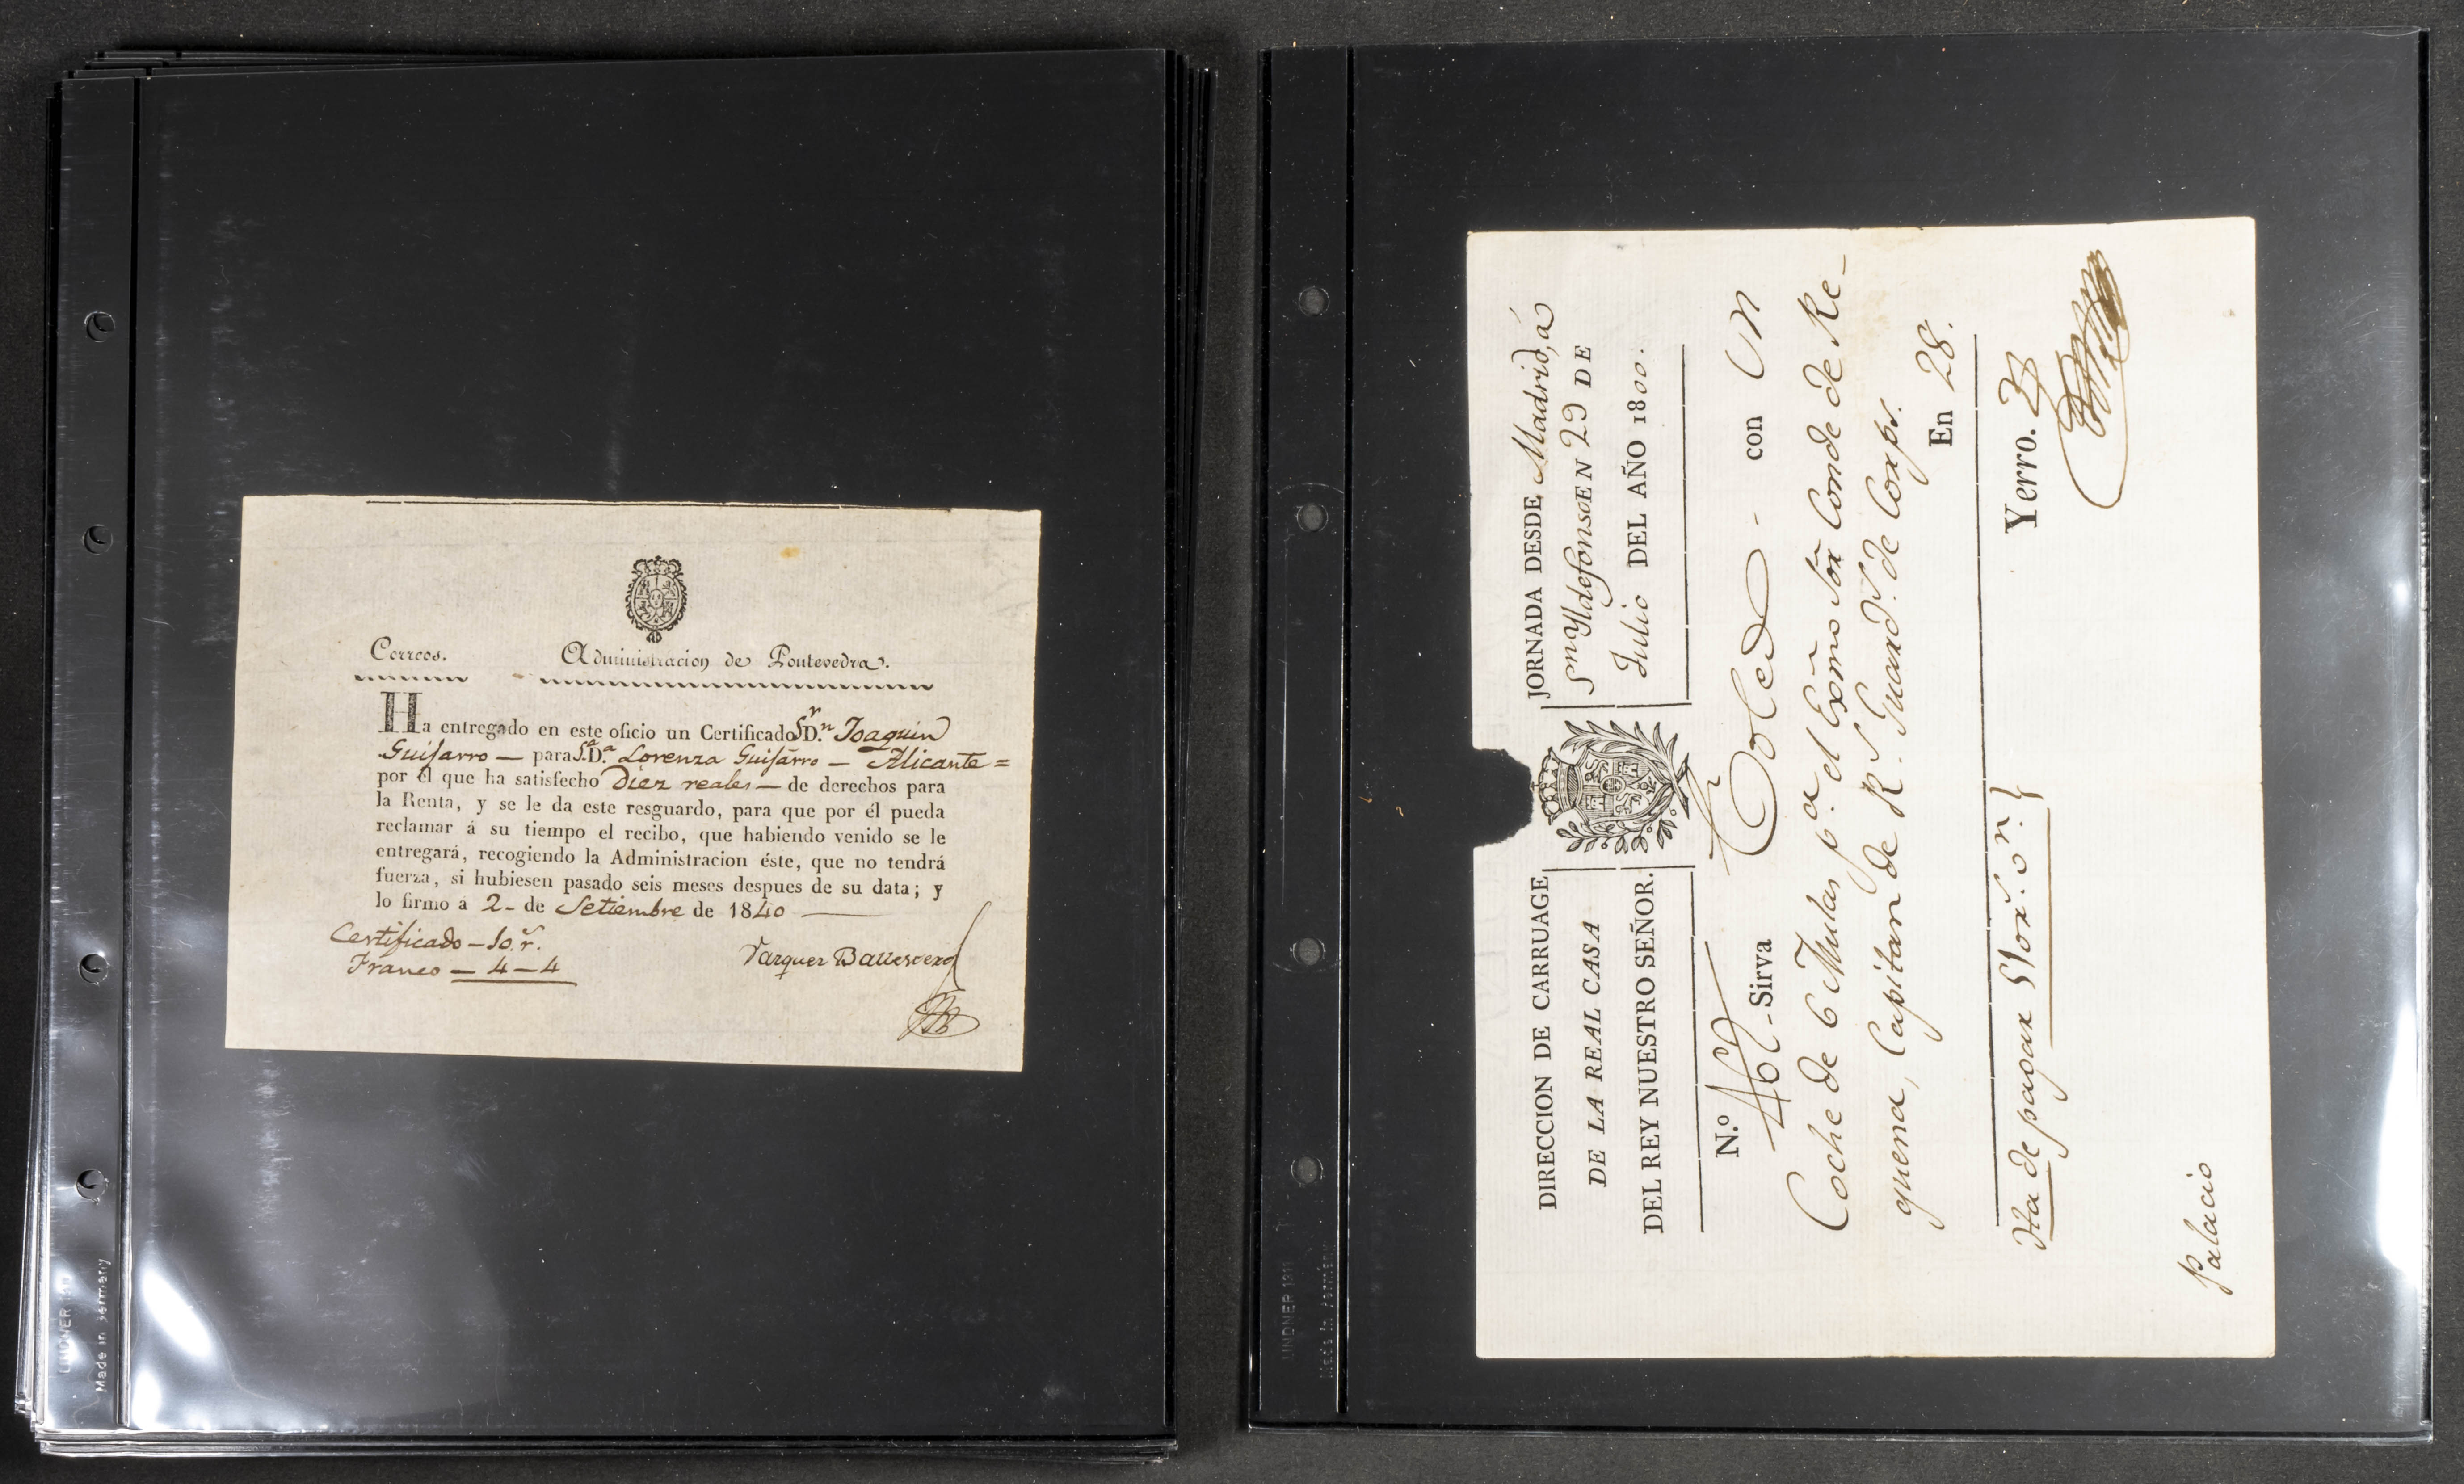 Correos. Administracion de Pontevedra.
Ha entregado en este oficio un Certificado Sr. D.n Joaquin
Guijarro — para S.a D.a Lorenza Guijarro — Alicante =
por él que ha satisfecho Diez reales — de derechos para
la Renta, y se le da este resguardo, para que por él pueda
reclamar á su tiempo el recibo, que habiendo venido se le
entregará, recogiendo la Administracion éste, que no tendrá
fuerza, si hubiesen pasado seis meses despues de su data; y
lo firmo á 2 - de Setiembre de 1840
Certificado — 10 r.
Franco — 4 — 4
Vazquez Ballesteros
LINDNER
Made in Germany
DIRECCION DE CARRUAGE
DE LA REAL CASA
DEL REY NUESTRO SEÑOR.
JORNADA DESDE Madrid, á
Sn Yldefonso EN 29 DE
Julio DEL AÑO 1800.
N.º - Sirva Toledo - con un
Coche de 6 Mulas p.a el Exmo Sor Conde de Re-
quena, Capitan de R.s Guard.s de Corps.
En 28.
Ha de pagar
Yerro.
Palacio
LINDNER
Made in Germany